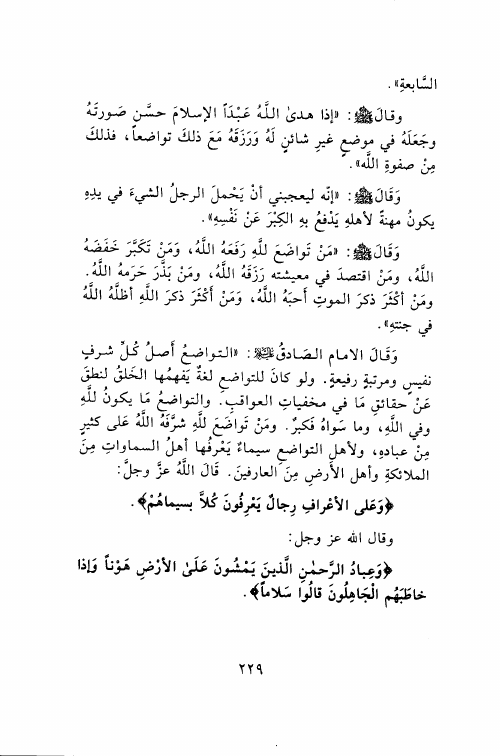 السَّابعةِ».
وقالَ ﷺ: «إذا هدىٰ اللَّهُ عَبْدَاً الإسلامَ حسَّن صَورتَهُ
وجَعَلَهُ في موضعٍ غيرِ شائنٍ لَهُ وَرَزَقَهُ مَعَ ذلكَ تواضعاً، فذلكَ
مِنْ صفوةِ اللَّه».
وَقَالَ ﷺ: «إنّه ليعجبني أنْ يَحْملَ الرجلُ الشيءَ في يدِهِ
يكونُ مهنةً لأهلهِ يَدْفعُ بهِ الكِبْرَ عَنْ نَفْسِهِ».
وَقَالَ ﷺ: «مَنْ تَواضَعَ للَّهِ رَفَعَهُ اللَّهُ، وَمَنْ تَكَبَّرَ خَفَضَهُ
اللَّهُ، ومَنْ اقتصدَ في معيشته رَزَقَهُ اللَّهُ، ومَنْ بَذَّرَ حَرَمهُ اللَّهُ.
ومَنْ أكْثَرَ ذكرَ الموتِ أحَبَهُ اللَّهُ، وَمَنْ أكْثَرَ ذكرَ اللَّهِ أظلَّهُ اللَّهُ
في جنتهِ».
وَقَالَ الامام الصَادقُ ﵇: «التواضعُ أصلُ كُلِّ شرفٍ
نفيسٍ ومرتبةٍ رفيعةٍ. ولو كانَ للتواضعِ لغةٌ يَفْهمُها الخَلقُ لنطقَ
عَنْ حقائقِ مَا في مخفياتِ العواقبِ. والتواضعُ مَا يكونُ للَّهِ
وفي اللَّهِ، وما سَواهُ فَكبرٌ. ومَنْ تَواضَعَ للَّهِ شرَّفَهُ اللَّهُ عَلى كثيرٍ
مِنْ عبادهِ، ولأهلِ التواضعِ سيماءٌ يَعْرفُها أهلُ السماواتِ مِنَ
الملائكةِ وأهل الأرضِ مِنَ العارفينَ. قَالَ اللَّهُ عزَّ وجلَّ:
﴿وَعَلى الأعْرافِ رِجالٌ يَعْرِفُونَ كُلاًّ بسيماهُمْ﴾.
وقال الله عز وجل:
﴿وَعِبادُ الرَّحمٰنِ الَّذينَ يَمْشُونَ عَلَىٰ الأرْضِ هَوْناً وَإذا
خاطَبَهُم الْجَاهِلُونَ قالُوا سَلاماً﴾.
٢٢٩